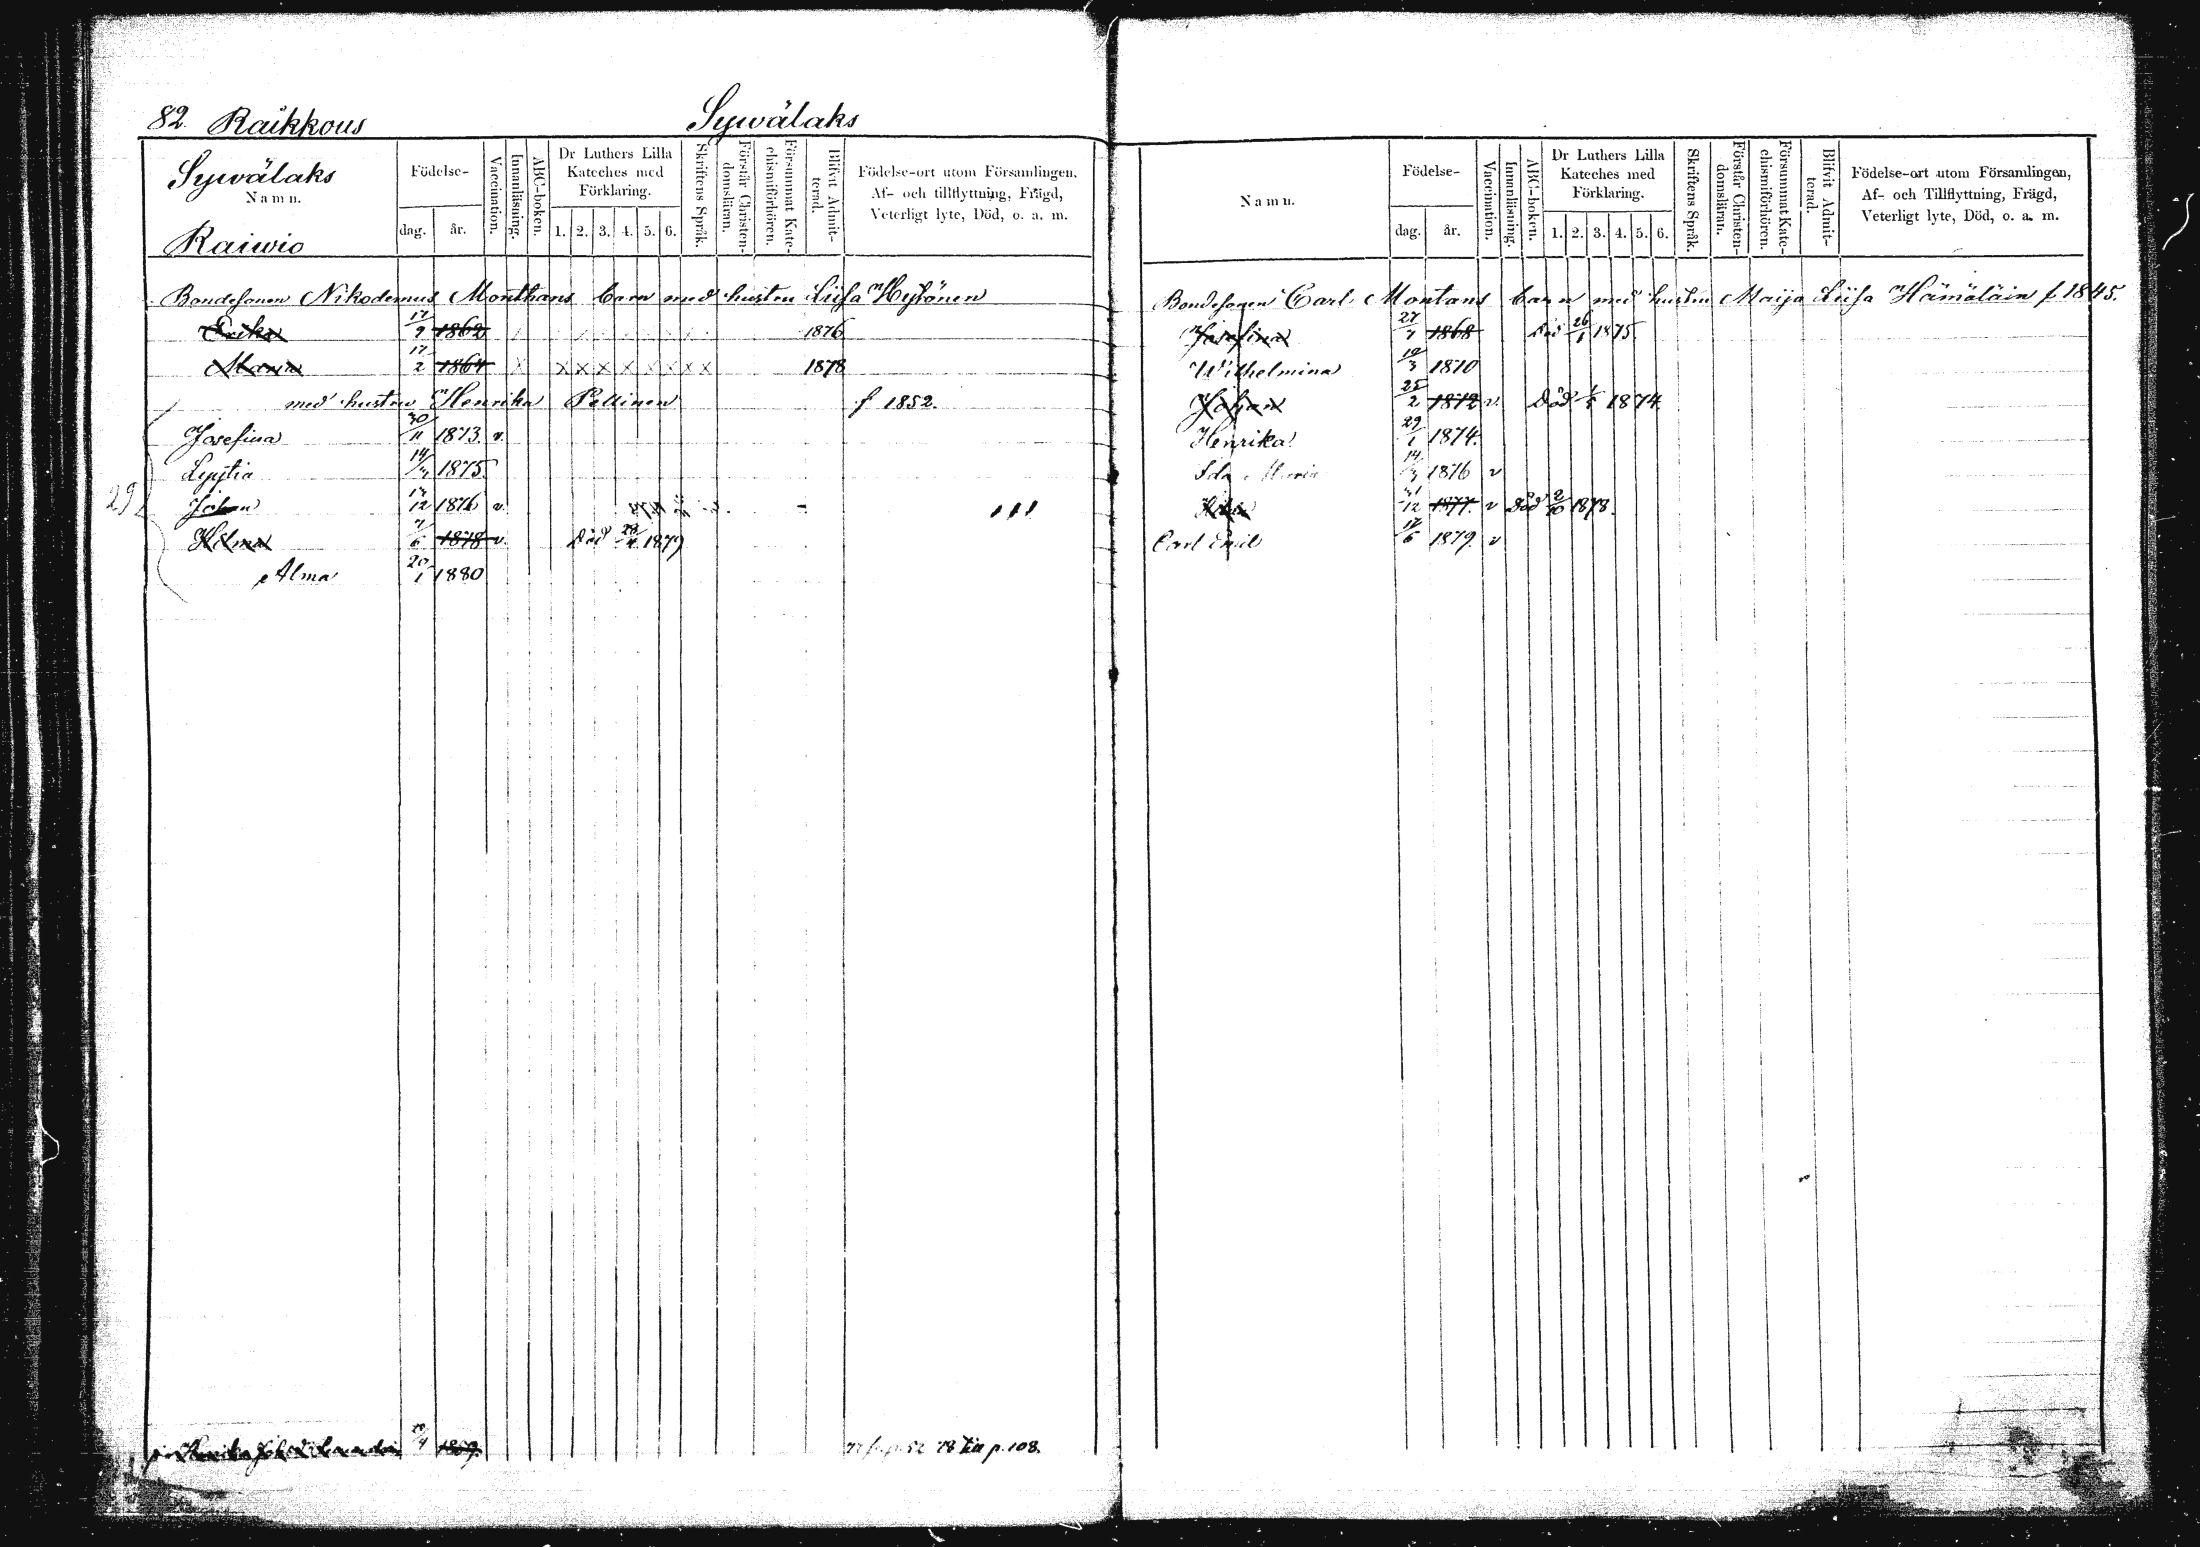 82. Raikkous Sywälaks
Sywälaks
Namn.
Raiwio
Födelse-
dag. år.
Vaccination.
Innanläsning.
ABC-boken.
Dr Luthers Lilla Kateches med Förklaring.
1. 2. 3. 4. 5. 6.
Skriftens Språk.
Förstår Christendomsläran.
Försummat Katechismiförhören.
Blifvit Admitterad.
Födelse-ort utom Församlingen, Af- och tillflyttning, Frägd, Veterligt lyte, Död, o. a. m.
Bondesonen Nikodemus Monthans barn med hustru Liisa Hyÿönen
Erika 17/9 1862 1876
Maria 17/2 1864 X X X X X X X X X 1878
med hustru Henrika Pellinen f 1852.
Josefina 30/11 1873. v.
14/ 1875
29
Johan 12 1876 v.
Hilma 7/6 1878 v. Död 28/ 1879
Alma 20/1 1880
1869. 78 p. 108.
Namn.
Födelse-
dag. år.
Vaccination.
Innanläsning.
ABC-boken.
Dr Luthers Lilla Kateches med Förklaring.
1. 2. 3. 4. 5. 6.
Skriftens Språk.
Förstår Christendomsläran.
Försummat Katechismiförhören.
Blifvit Admitterad.
Födelse-ort utom Församlingen, Af- och Tillflyttning, Frägd, Veterligt lyte, Död, o. a. m.
Bondesonen Carl Montans barn med hustru Maija Liisa Hämäläin f. 1845.
Josefina 27/7 1868 Död 26/1 1875
Wilhelmina 19/3 1870
Johan 25/2 1872 v. Död 1/5 1874.
Henrika 29/1 1874.
Ida Maria 14/ 1876 v
12 1877. v Död 2/10 1878.
Carl Emil 17/6 1879. v